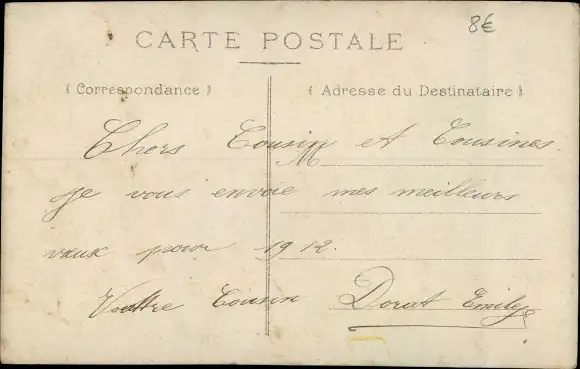 8€
CARTE POSTALE
( Correspondance )
( Adresse du Destinataire )
M
Chers Cousin et Cousines.
je vous envoie mes meilleurs
vœux pour 1912.
Vottre Cousin Dorat Emile